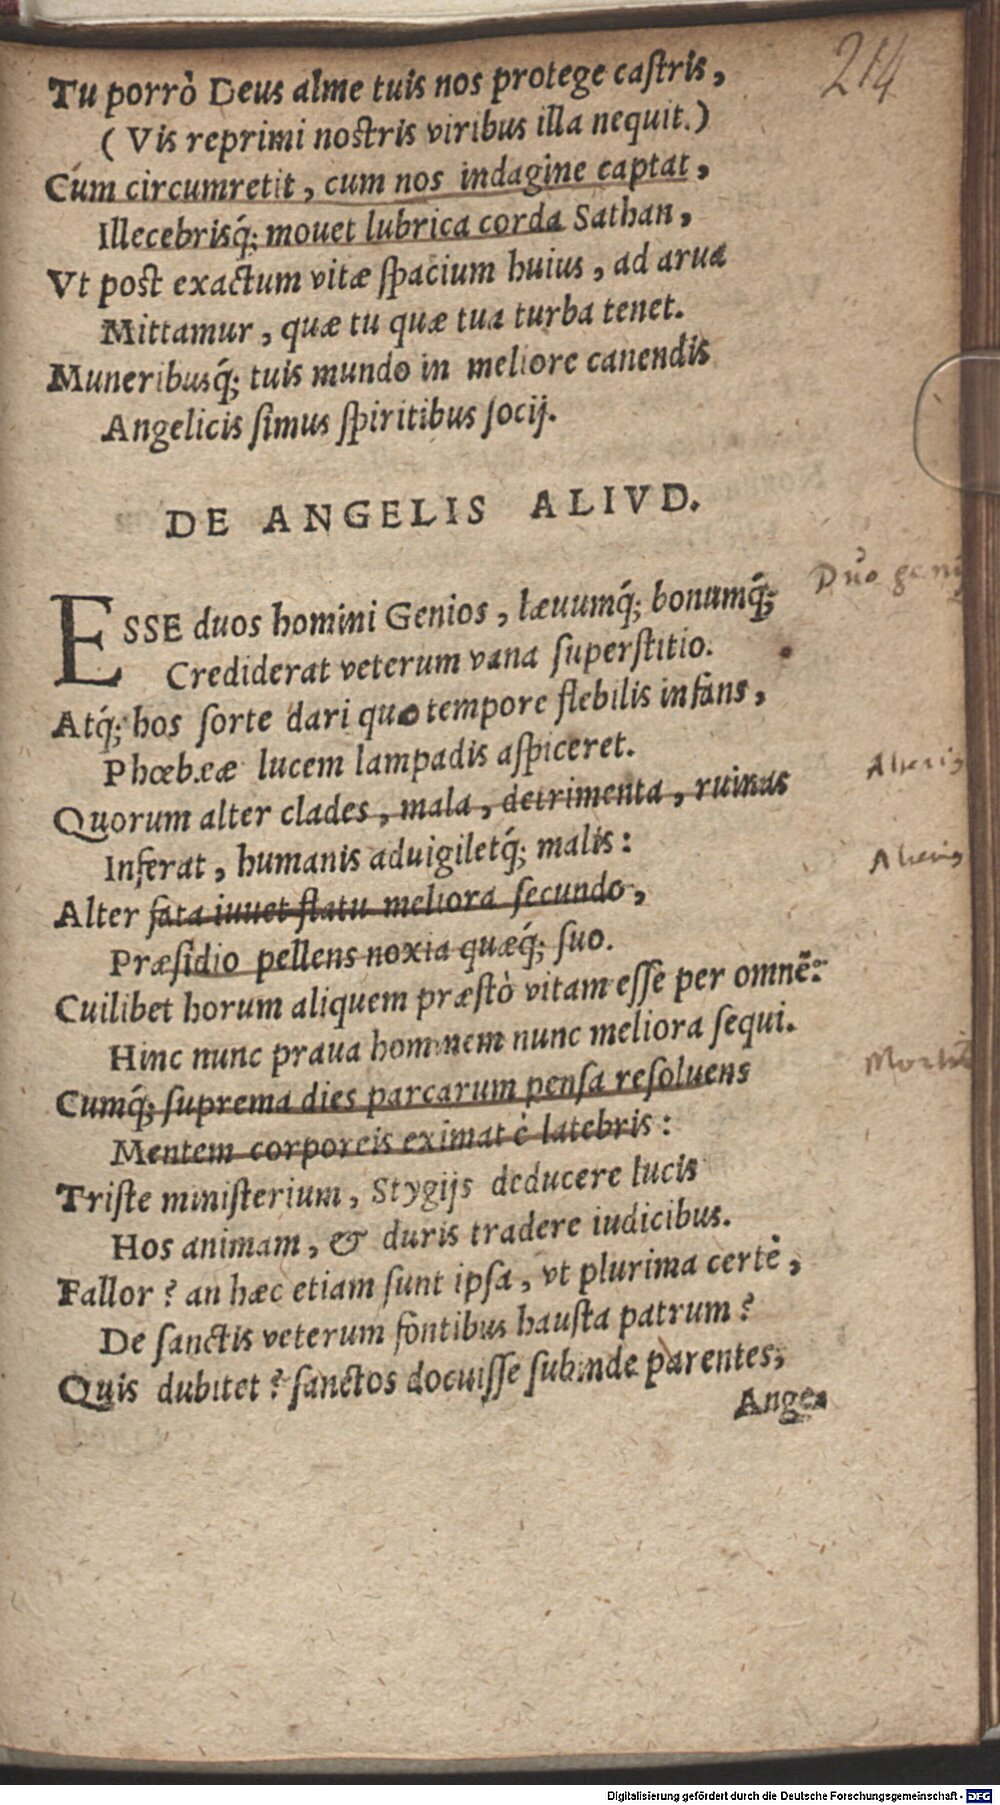 214
Tu porrò Deus alme tuis nos protege castris,
( Vis reprimi nostris viribus illa nequit.)
Cùm circumretit, cum nos indagine captat,
Illecebrisq́; mouet lubrica corda Sathan,
Vt post exactum vitæ spacium huius, ad arua
Mittamur, quæ tu quæ tua turba tenet.
Muneribusq́; tuis mundo in meliore canendis
Angelicis simus spiritibus socij.
DE ANGELIS ALIVD.
ESSE duos homini Genios, læuumq́; bonumq́;
Duo genij
Crediderat veterum vana superstitio.
Atq́; hos sorte dari quo tempore flebilis infans,
Phœbeæ lucem lampadis aspiceret.
Alterius
Quorum alter clades, mala, detrimenta, ruinas
Inferat, humanis aduigiletq́; malis:
Alterius
Alter fata iuuet flatu meliora secundo,
Præsidio pellens noxia quæq́; suo.
Cuilibet horum aliquem præstò vitam esse per omnẽ:
Hinc nunc praua hominem nunc meliora sequi.
Cumq́; suprema dies parcarum pensa resoluens
Mentem corporeis eximat è latebris:
Triste ministerium, Stygijs deducere lucis
Hos animam, & duris tradere iudicibus.
Fallor? an hæc etiam sunt ipsa, vt plurima certè,
De sanctis veterum fontibus hausta patrum?
Quis dubitet? sanctos docuisse subinde parentes,
Ange-
Digitalisierung gefördert durch die Deutsche Forschungsgemeinschaft - DFG